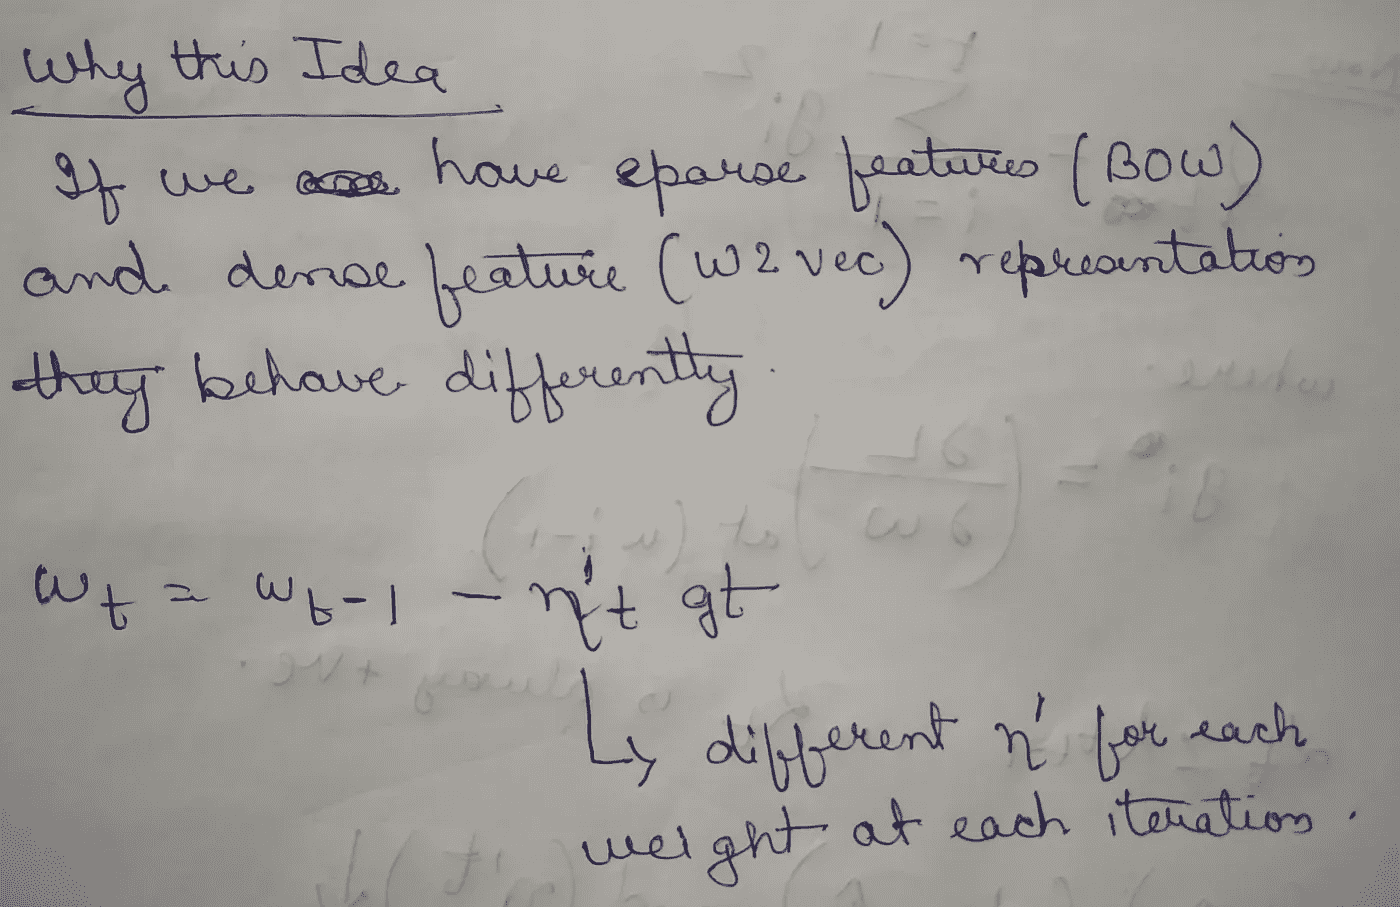 Why this Idea
If we have sparse features (BOW)
and dense feature (W2vec) representation
they behave differently.
wt = wt-1 - η't gt
↳ different η' for each
weight at each iteration.